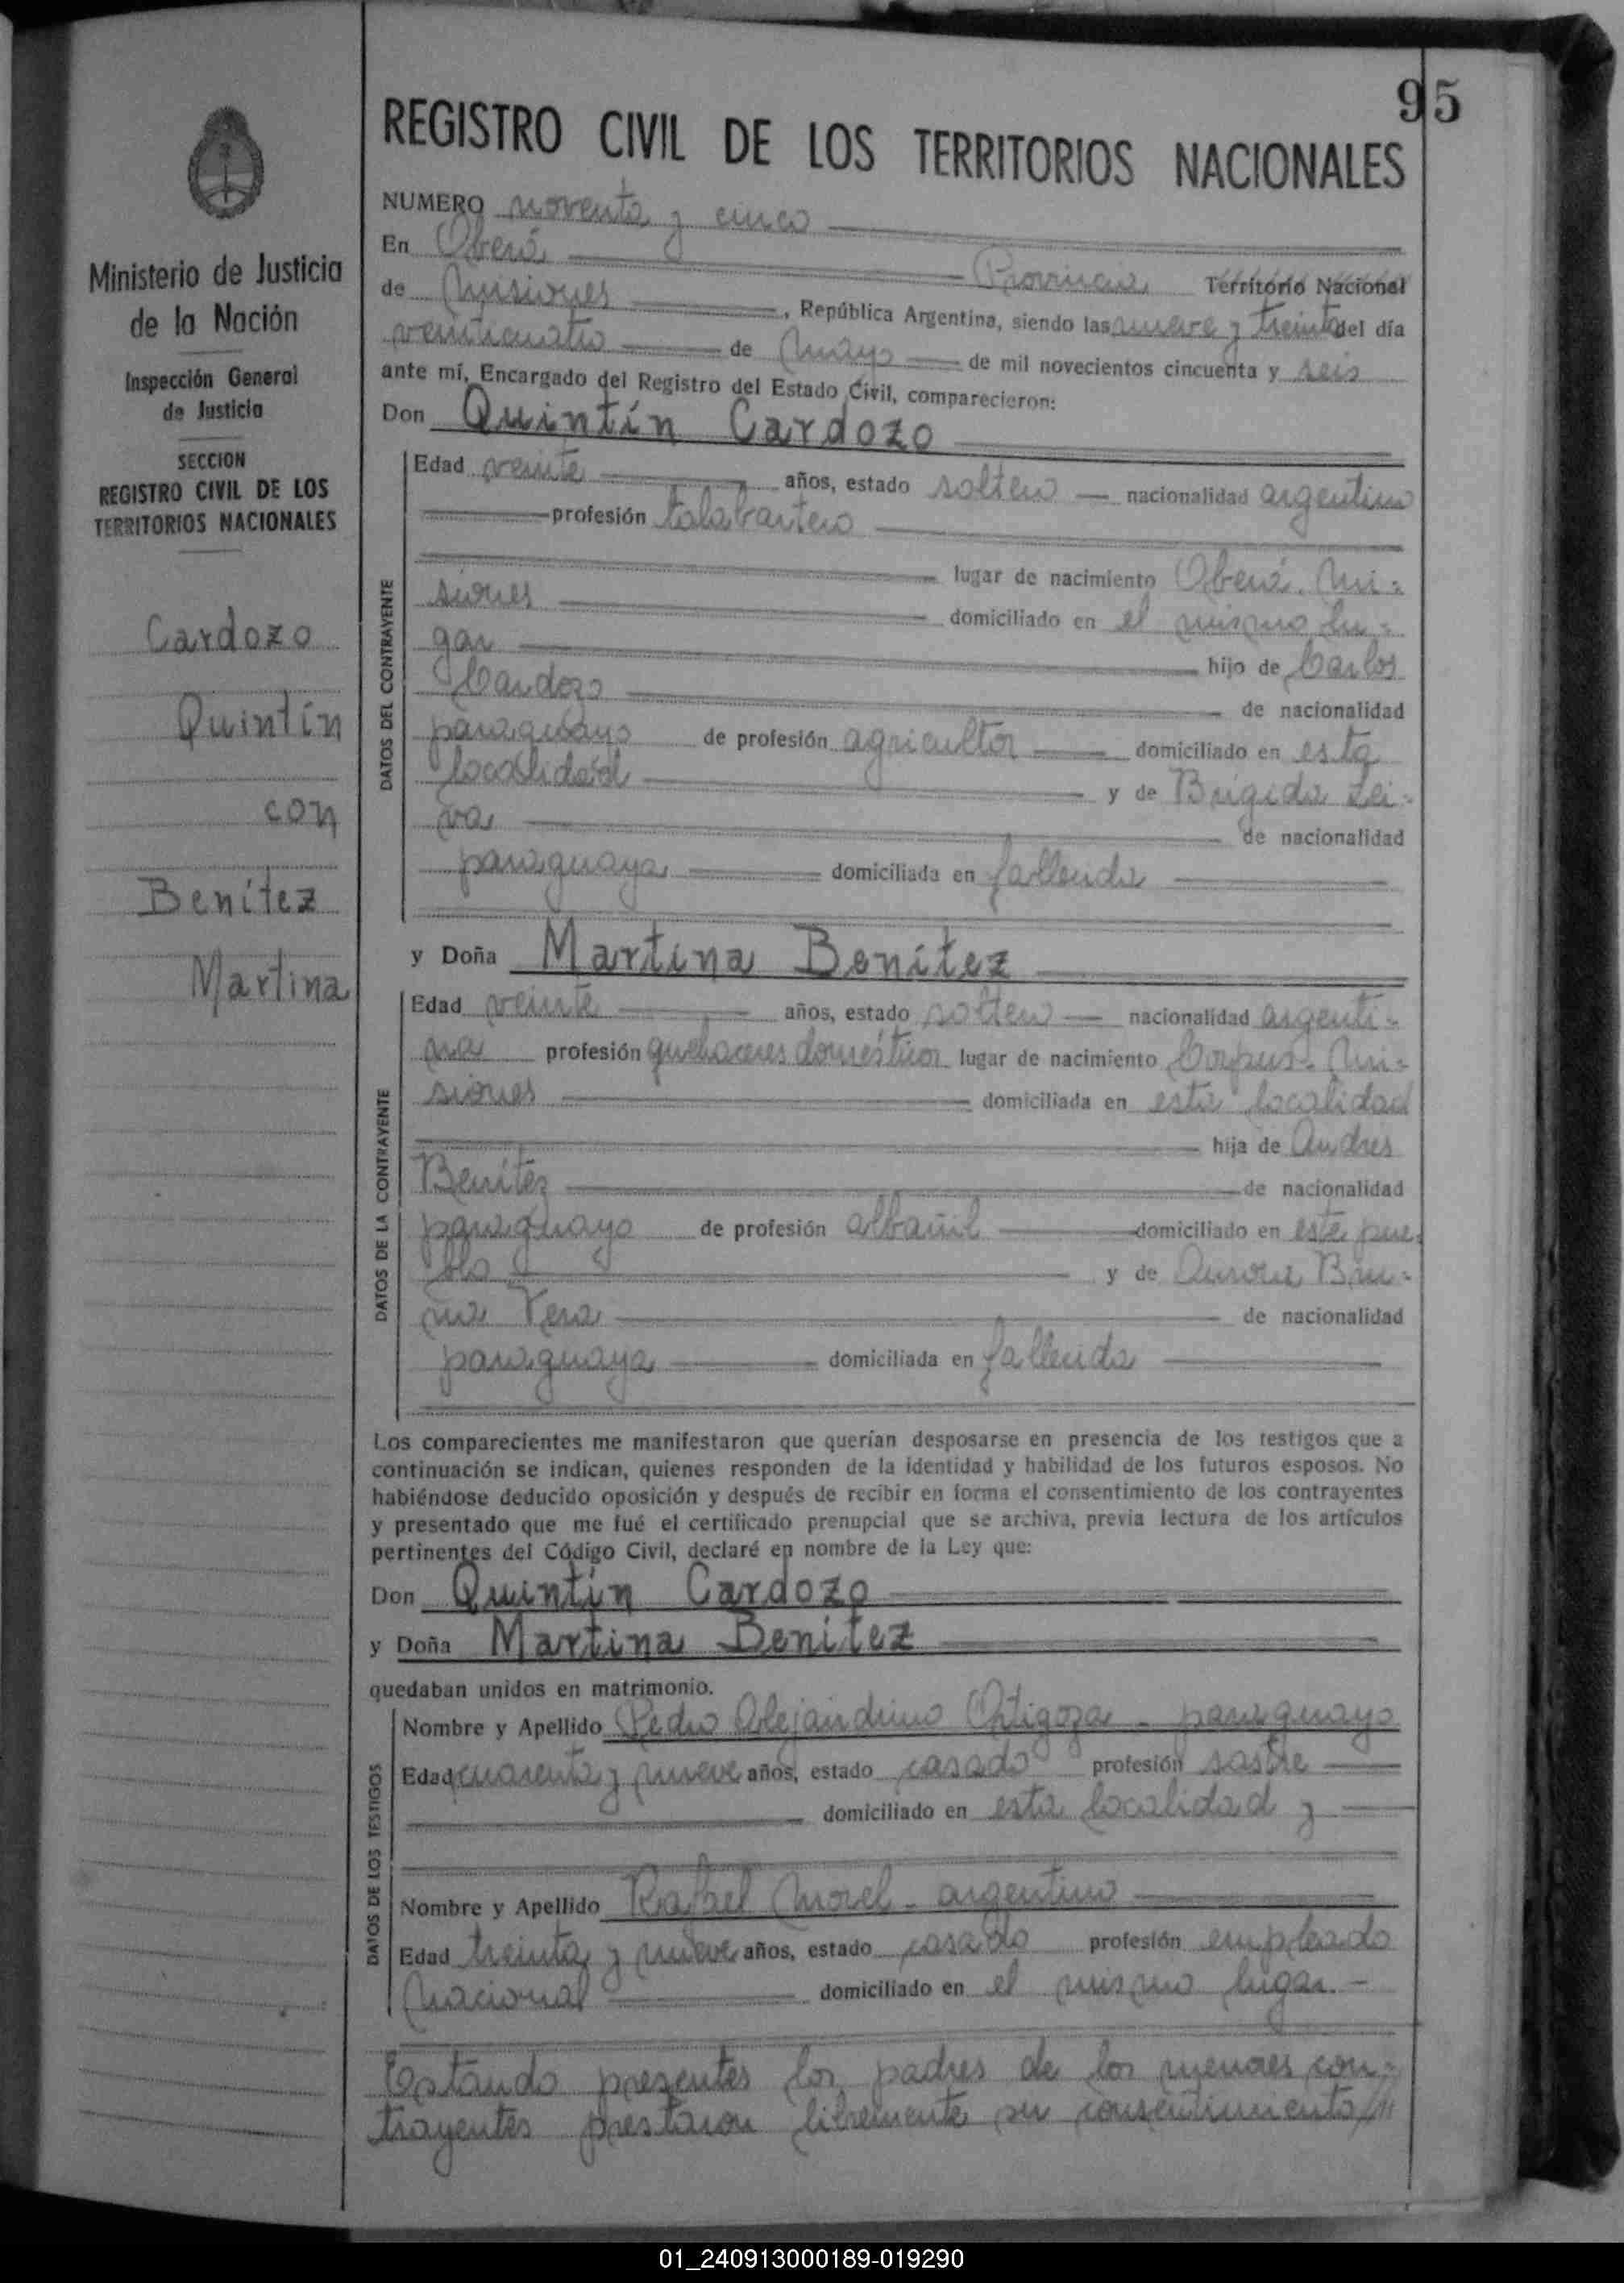 95
REGISTRO CIVIL DE LOS TERRITORIOS NACIONALES
NUMERO noventa y cinco
En Oberá Provincia Territorio Nacional
de Misiones, República Argentina, siendo las nueve y treinta del día
veinticuatro de Mayo de mil novecientos cincuenta y seis
ante mí, Encargado del Registro del Estado Civil, comparecieron:
Don Quintín Cardozo
DATOS DEL CONTRAYENTE
Edad veinte años, estado soltero nacionalidad argentino
profesión talabartero
lugar de nacimiento Oberá. Mi-
siones domiciliado en el mismo lu-
gar hijo de Carlos
Cardozo de nacionalidad
paraguayo de profesión agricultor domiciliado en esta
localidad y de Brigida Lei-
va de nacionalidad
paraguaya domiciliada en fallecida
y Doña Martina Benítez
DATOS DE LA CONTRAYENTE
Edad veinte años, estado soltera nacionalidad argenti-
na profesión quehaceres domésticos lugar de nacimiento Corpus- Mi-
siones domiciliada en esta localidad
hija de Andres
Benítez de nacionalidad
paraguayo de profesión albañil domiciliado en este pue-
blo y de Aurora
Vera de nacionalidad
paraguaya domiciliada en fallecida
Los comparecientes me manifestaron que querían desposarse en presencia de los testigos que a
continuación se indican, quienes responden de la identidad y habilidad de los futuros esposos. No
habiéndose deducido oposición y después de recibir en forma el consentimiento de los contrayentes
y presentado que me fué el certificado prenupcial que se archiva, previa lectura de los artículos
pertinentes del Código Civil, declaré en nombre de la Ley que:
Don Quintín Cardozo
y Doña Martina Benítez
quedaban unidos en matrimonio.
DATOS DE LOS TESTIGOS
Nombre y Apellido Pedro Alejandrino Ortigoza - paraguayo
Edad cuarenta y nueve años, estado casado profesión sastre
domiciliado en esta localidad y
Nombre y Apellido Rafael Morel - argentino
Edad treinta y nueve años, estado casado profesión empleado
Nacional domiciliado en el mismo lugar.-
Estando presentes los padres de los menores con-
trayentes prestaron libremente su consentimiento///
Ministerio de Justicia
de la Nación
Inspección General
de Justicia
SECCION
REGISTRO CIVIL DE LOS
TERRITORIOS NACIONALES
Cardozo
Quintín
con
Benítez
Martina
01_240913000189-019290